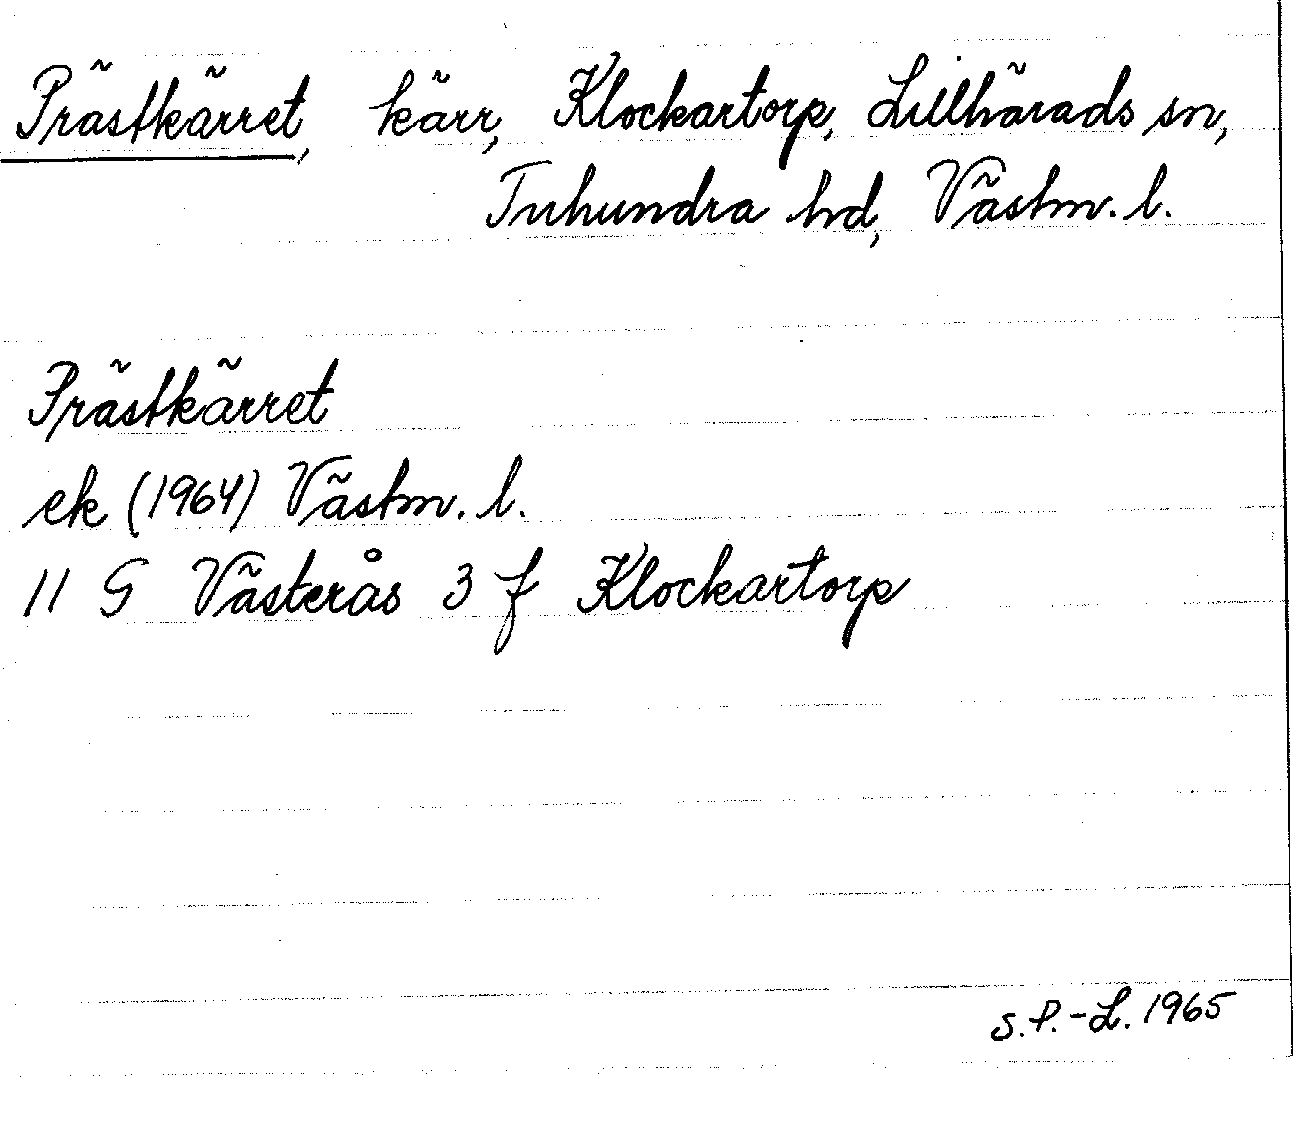 Prästkärret, kärr, Klockartorp, Lillhärads sn,
Tuhundra hd, Västm. l.
Prästkärret
ek (1964) Västm. l.
11 G Västerås 3 f Klockartorp
S.P.-L. 1965